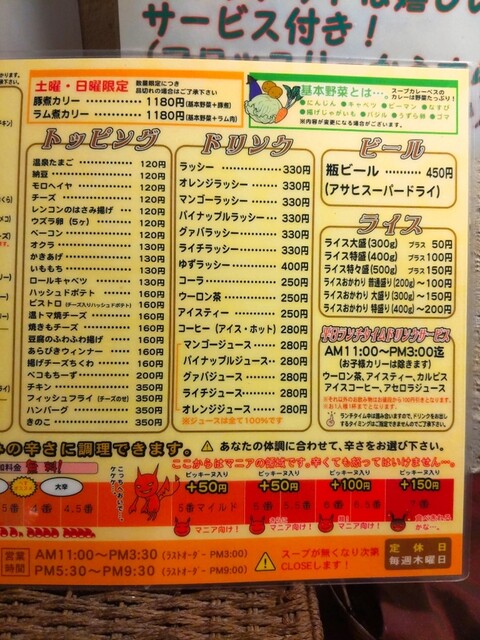 サービス付き！
土曜・日曜限定
数量限定につき
品切れの場合はご了承下さい
豚煮カリー ・・・・・・・・・・・ 1180円(基本野菜＋豚煮)
ラム煮カリー ・・・・・・・・ 1180円(基本野菜＋ラム肉)
基本野菜とは…。
スープカレーベースの
カレーは野菜たっぷり！
●にんじん ●キャベツ ●ピーマン ●なすび
●揚げじゃがいも ●バジル ●うずら卵 ●ゴマ
※内容が変更になる場合がございます。
トッピング
温泉たまご 120円
納豆 120円
モロヘイヤ 120円
チーズ 120円
レンコンのはさみ揚げ 120円
ウズラ卵（5ヶ） 120円
ベーコン 120円
オクラ 130円
かきあげ 130円
いももち 130円
ロールキャベツ 130円
ハッシュドポテト 160円
ピストロ (チーズ入りハッシュドポテト) 160円
温トマ焼チーズ 160円
焼きもチーズ 160円
豆腐のふわふわ揚げ 160円
あらびきウィンナー 160円
揚げチーズちくわ 160円
ペコもちーず 200円
チキン 350円
フィッシュフライ (チーズのせ) 350円
ハンバーグ 350円
きのこ 350円
ドリンク
ラッシー 330円
オレンジラッシー 330円
マンゴーラッシー 330円
パイナップルラッシー 330円
グァバラッシー 330円
ライチラッシー 330円
ゆずラッシー 400円
コーラ 250円
ウーロン茶 250円
アイスティー 250円
コーヒー（アイス・ホット） 280円
マンゴージュース 280円
パイナップルジュース 280円
グァバジュース 280円
ライチジュース 280円
オレンジジュース 280円
※ジュースは全て100％です
ビール
瓶ビール ・・・・・・・・ 450円
(アサヒスーパードライ)
ライス
ライス大盛(300g) プラス 50円
ライス特盛(400g) プラス100円
ライス特々盛(500g) プラス150円
ライスおかわり 普通盛り(200g) ～100円
ライスおかわり 大盛り(300g) ～150円
ライスおかわり 特盛り(400g) ～200円
ランチタイムドリンクサービス
AM11:00～PM3:00迄
(お子様カリーは除きます)
ウーロン茶、アイスティー、カルピス
アイスコーヒー、アセロラジュース
※それ以外のお飲物はお値段から100円引きとなります。
※お1人様1杯までとなります。
ランチタイム中は混み合いますので、ドリンクをお出し
するタイミングはご指定できませんのでご了承下さい。
の辛さに調理できます。
あなたの体調に合わせて、辛さをお選び下さい。
加料金 無料！
こっちへおいで～。
ケケケ
ここからはマニアの領域です。辛くても怒ってはいけません―。
ピッキーヌ入り ピッキーヌ入り ピッキーヌ入り ピッキーヌ入り
＋50円 ＋50円 ＋100円 ＋150円
大辛
4番 4.5番 5番マイルド 5番 6番 7番
マニア向け！ マニア向け！ マニア向け！
営業時間
AM11:00～PM3:30 (ラストオーダーPM3:00)
PM5:30～PM9:30 (ラストオーダーPM9:00)
スープが無くなり次第
CLOSEします！
定休日
毎週木曜日